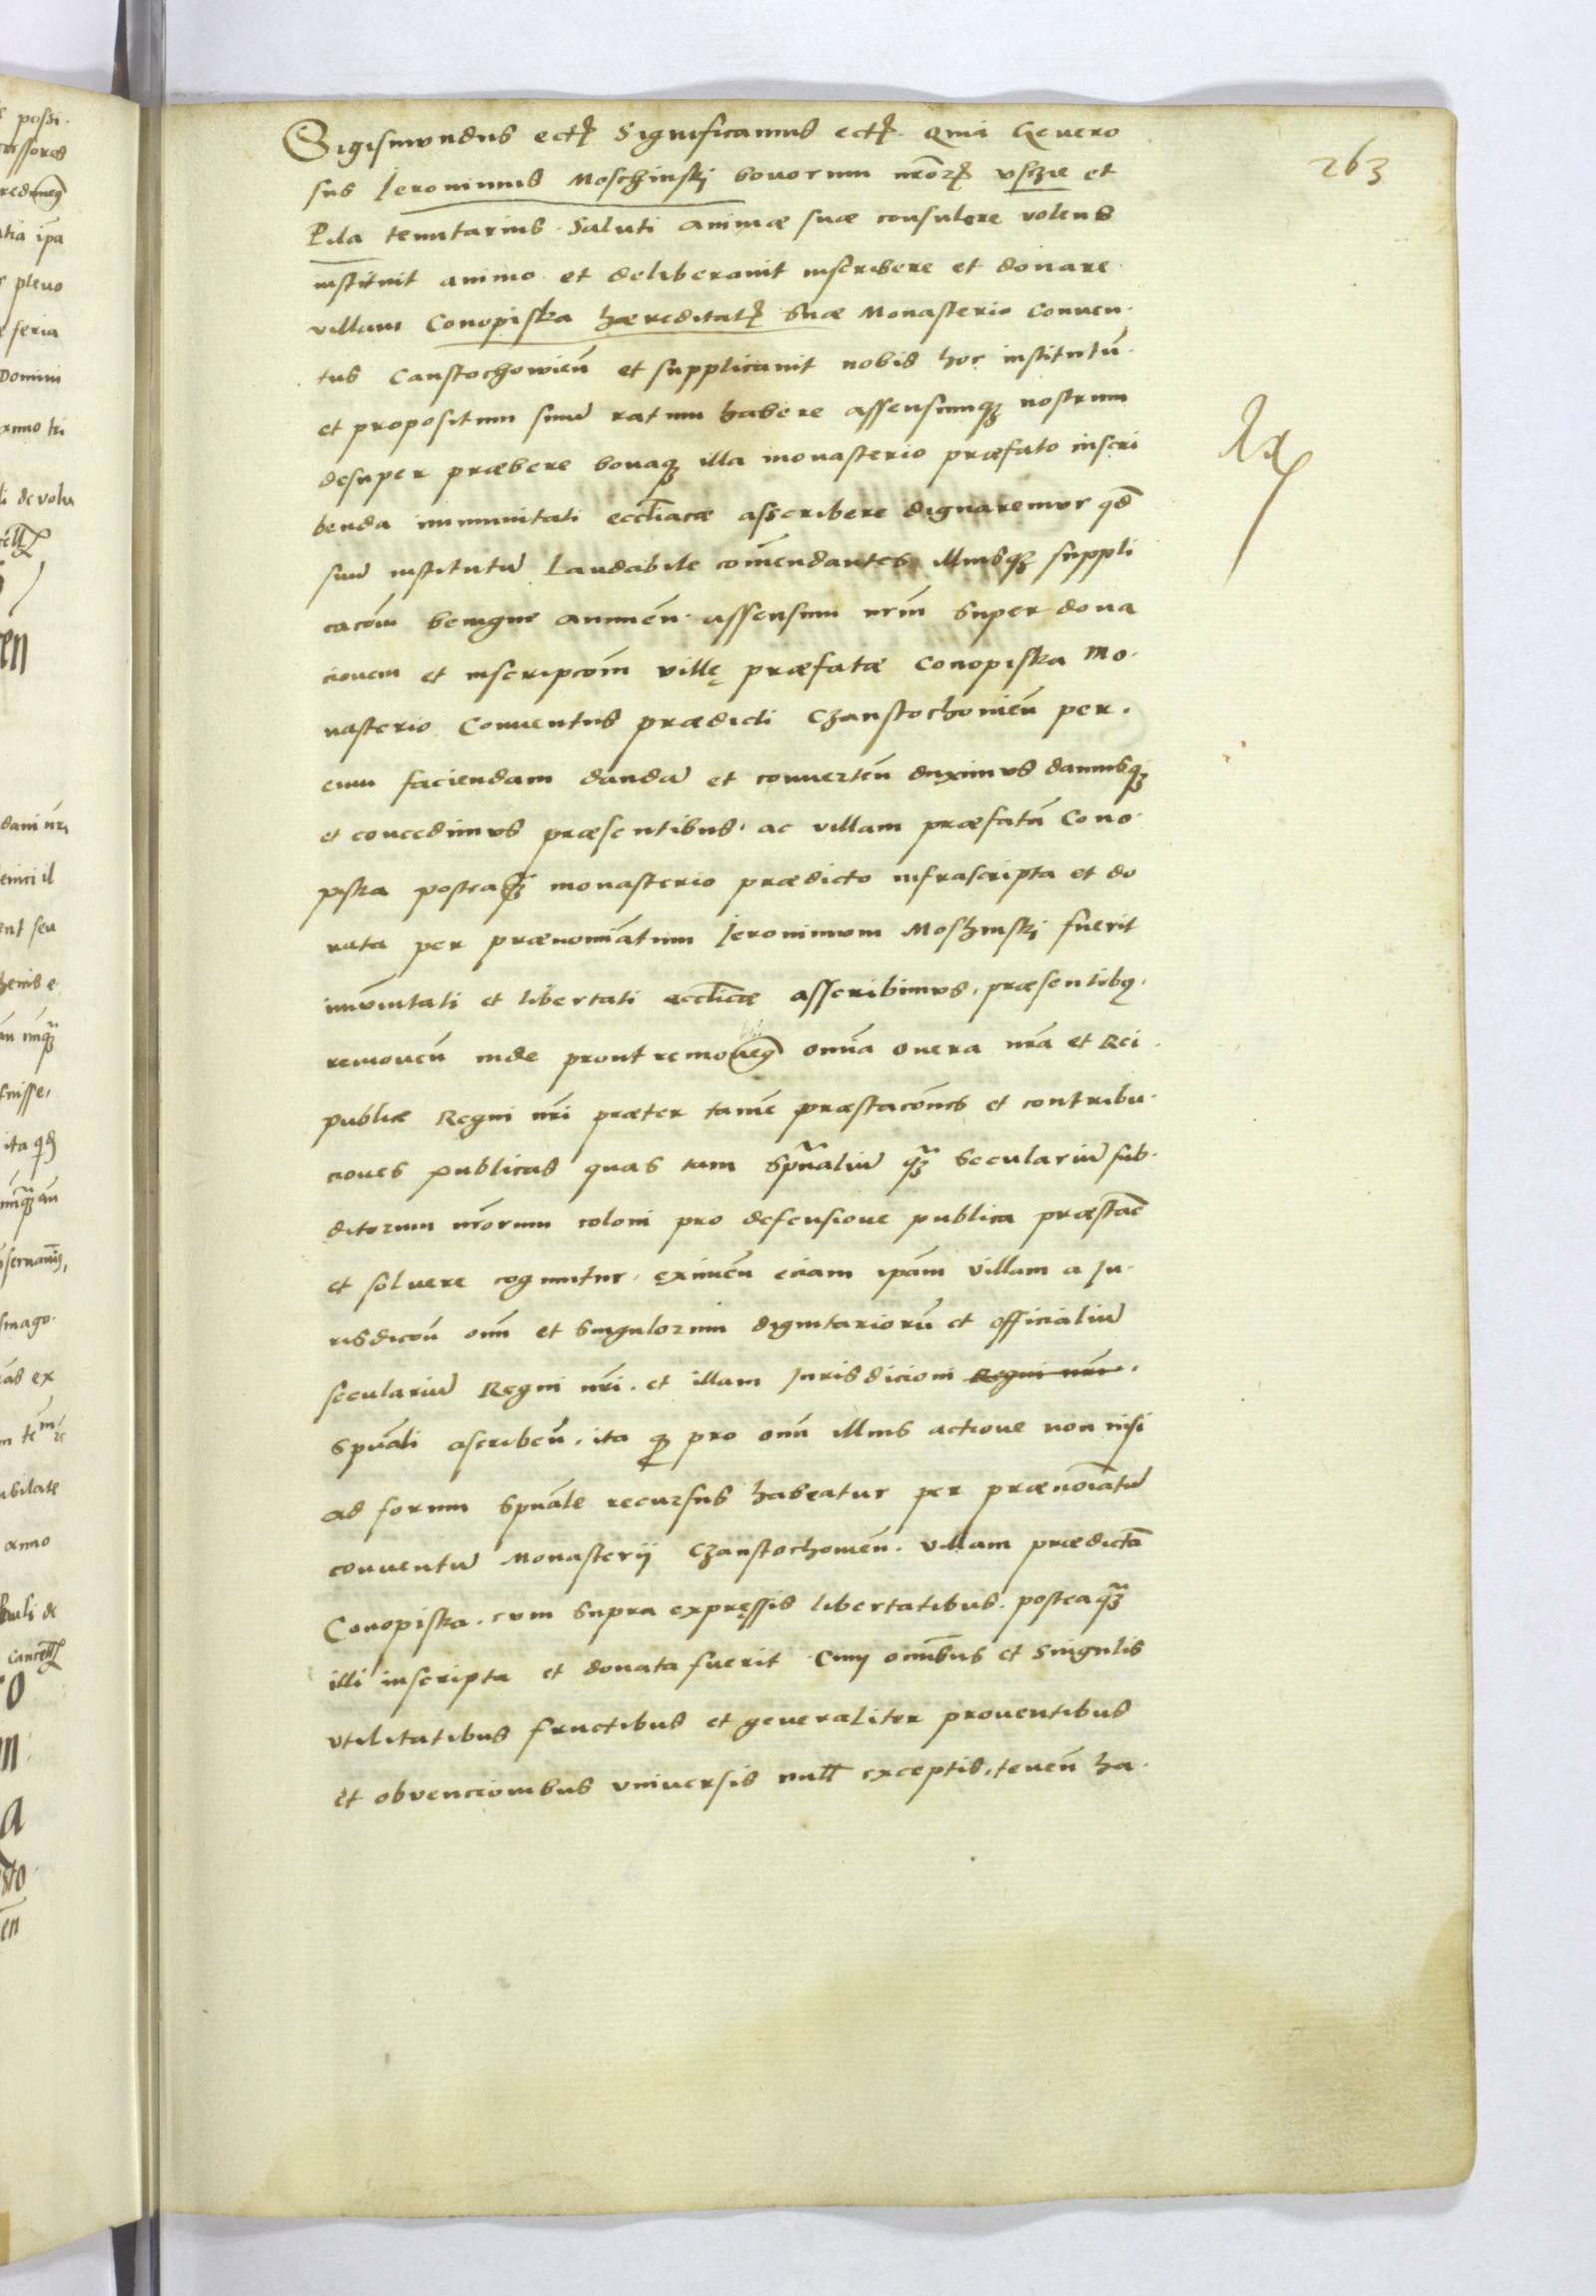 263
Sigismundus ectꝫ Significamus ectꝫ. Quia Genero
sus Jeronimus Moschinskj bonorum nr̄orꝫ vschie et
Pila tenutarius. Saluti animæ suæ consulere volens
instituit animo et deliberauit inscribere et donare
villam Conopiska hæreditatꝫ suæ Monasterio Conuen-
tus Canstochowień et supplicauit nobis hoc institutū
et propositum suū ratum habere assensumqꝫ nostrum
desuper præbere bonaqꝫ illa monasterio præfato inscri
benda immunitati eccl̄iacæ asscribere dignaremur qd̄
suū institutū Laudabile com̄endantes illiusqꝫ suppli
cacōni benigne annueń. assensum nrm̄ super dona
cionem et inscripcōm villę præfatæ Conopiska Mo-
nasterio Conuentus prædicti Czanstochouień per
eum faciendam dandā et conuerteń duximus damusqꝫ
et concedimus præsentibus. ac villam præfatā Cono
piska posteaqꝫ̄ monasterio prædicto infrascripta et do
nata per prænomīatum Jeronimum Moshinskj fuerit
immūnitati et libertati eccl̄icæ asscribimus, præsentibꝫ,
remoueń inde prout remoueꝫ omīa onera nr̄a et Rei
publicæ Regni nr̄i præter tamē præstacōnes et contribu-
ciones publicas quas tam spūaliū qꝫ̄ seculariū sub-
ditorum nr̄orum coloni pro defensione publica præstaē
et soluere coguntur. eximeń eciam ipām villam a Ju-
risdicōn om̄i et singulorum dignitariorū et officialiū
seculariū Regni nr̄i. et illam Jurisdicioni Regni nr̄i.
spūali ascribeń. ita ꝙ pro om̄i illius actione non nisi
ad forum spūale recursus habeatur per prænoīatū
conuentū Monasterij Czanstochouień. villam prædictā
Conopiska. cum supra expręssis libertatibus. posteaqꝫ̄
illi inscripta et donata fuerit Cum om̄ibus et singulis
vtilitatibus fructibus et generaliter prouentibus
et obuencionibus vniuersis null̄ exceptis, teneń ha-